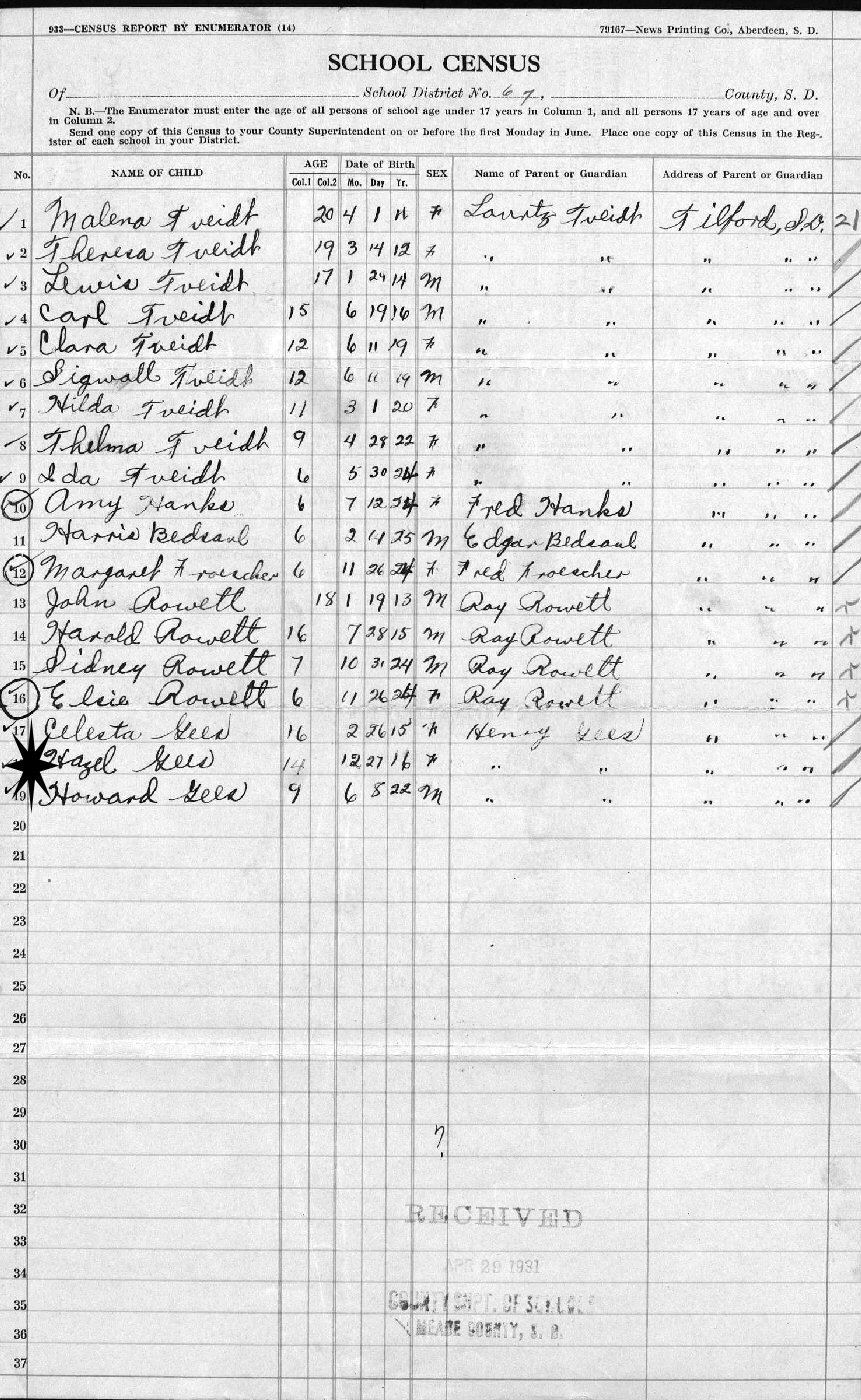 933—CENSUS REPORT BY ENUMERATOR (14) 79167—News Printing Co., Aberdeen, S. D.
SCHOOL CENSUS
Of School District No. 67, County, S. D.
N. B.—The Enumerator must enter the age of all persons of school age under 17 years in Column 1, and all persons 17 years of age and over
in Column 2.
Send one copy of this Census to your County Superintendent on or before the first Monday in June. Place one copy of this Census in the Reg-
ister of each school in your District.
No. NAME OF CHILD AGE Date of Birth SEX Name of Parent or Guardian Address of Parent or Guardian
Col.1 Col.2 Mo. Day Yr.
1 Malena Tveidt 20 4 1 11 F Lauritz Tveidt Tilford, S.D. 21
2 Theresa Tveidt 19 3 14 12 F " " " " "
3 Lewis Tveidt 17 1 24 14 M " " " " "
4 Carl Tveidt 15 6 19 16 M " " " " "
5 Clara Tveidt 12 6 11 19 F " " " " "
6 Sigwall Tveidt 12 6 11 19 M " " " " "
7 Hilda Tveidt 11 3 1 20 F " " " " "
8 Thelma Tveidt 9 4 28 22 F " " " " "
9 Ida Tveidt 6 5 30 24 F " " " " "
10 Amy Hanks 6 7 12 24 F Fred Hanks " " "
11 Harris Bedsaul 6 2 14 25 M Edgar Bedsaul " " "
12 Margaret Froescher 6 11 26 24 F Fred Froescher " " "
13 John Rowett 18 1 19 13 M Ray Rowett " " "
14 Harold Rowett 16 7 28 15 M Ray Rowett " " "
15 Sidney Rowett 7 10 31 24 M Ray Rowett " " "
16 Elsie Rowett 6 11 26 24 F Ray Rowett " " "
17 Celesta Gees 16 2 26 15 F Henry Gees " " "
Hazel Gees 14 12 27 16 F " " " " "
19 Howard Gees 9 6 8 22 M " " " " "
20
21
22
23
24
25
26
27
28
29
30 ?
31
32 RECEIVED
33
34 APR 29 1931
35 COUNTY SUPT. OF SCHOOLS
36 MEADE COUNTY, S. D.
37